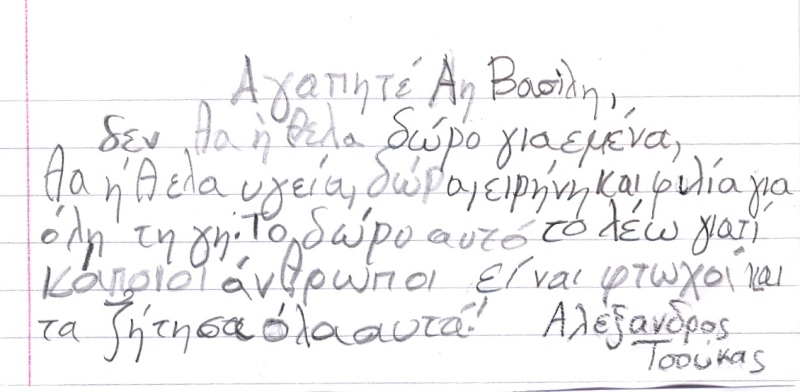 Αγαπητέ Αη Βασίλη,
δεν θα ήθελα δώρο για εμένα,
θα ήθελα υγεία, δώρα, ειρήνη και φιλία για
όλη τη γη. Το δώρο αυτό το λέω γιατί
κάποιοι άνθρωποι είναι φτωχοί και
τα ζήτησα όλα αυτά!
Αλέξανδρος
Τσούκας